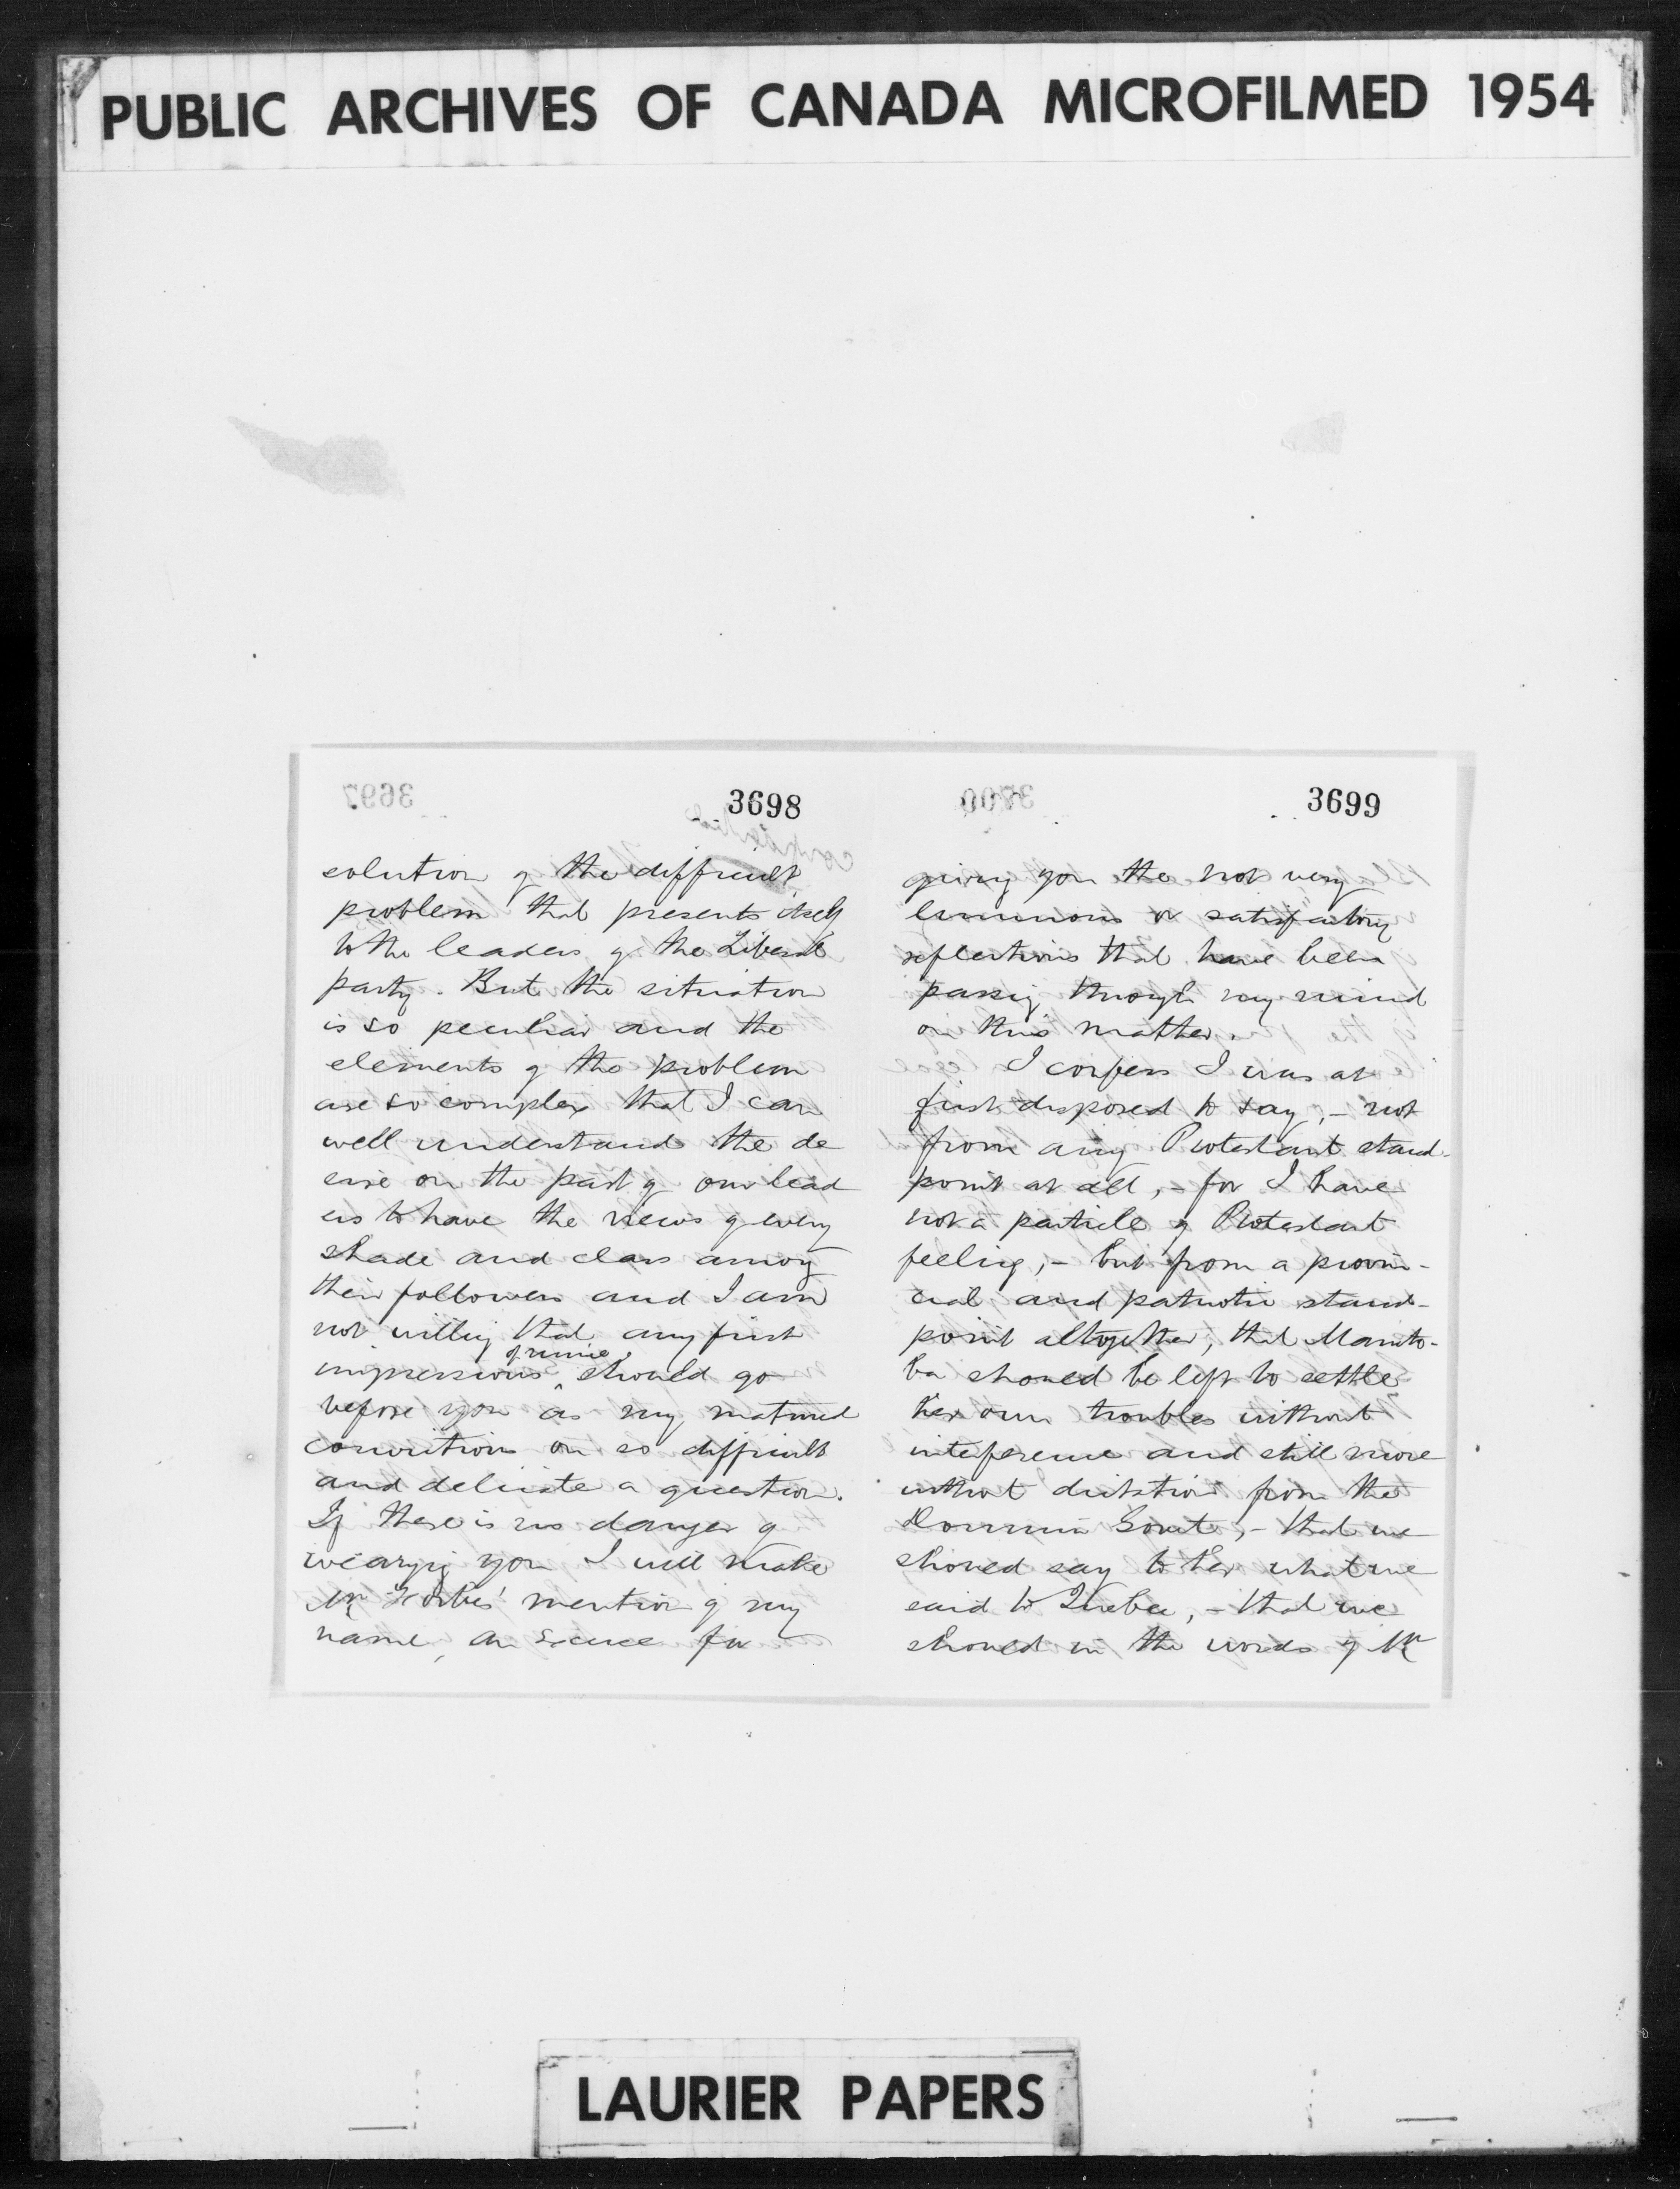 PUBLIC ARCHIVES OF CANADA MICROFILMED 1954
3698
solution of the difficult
problem that presents itself
to the leaders of the Liberal
party. But the situation
is so peculiar and the
elements of the problem
are so complex that I can
well understand the de
sire on the part of our lead
ers to have the views of every
shade and class among
their followers and I am
not willing that any first
impressions of mine should go
before you as my matured
convictions on so difficult
and delicate a question.
If there is no danger of
wearying you I will make
Mr Forbes' mention of my
name, an excuse for
3699
giving you the not very
luminous or satisfactory
reflections that have been
passing through my mind
on this matter.
I confess I was at
first disposed to say, - not
from any Protestant stand-
point at all, - for I have
not a particle of Protestant
feeling, - but from a provin-
cial and patriotic stand-
point altogether, that Manito-
ba should be left to settle
her own troubles without
interference and still more
without dictation from the
Dominion Govt, - that we
should say to her what we
said to Quebec, - that we
should in the words of Mr
LAURIER PAPERS